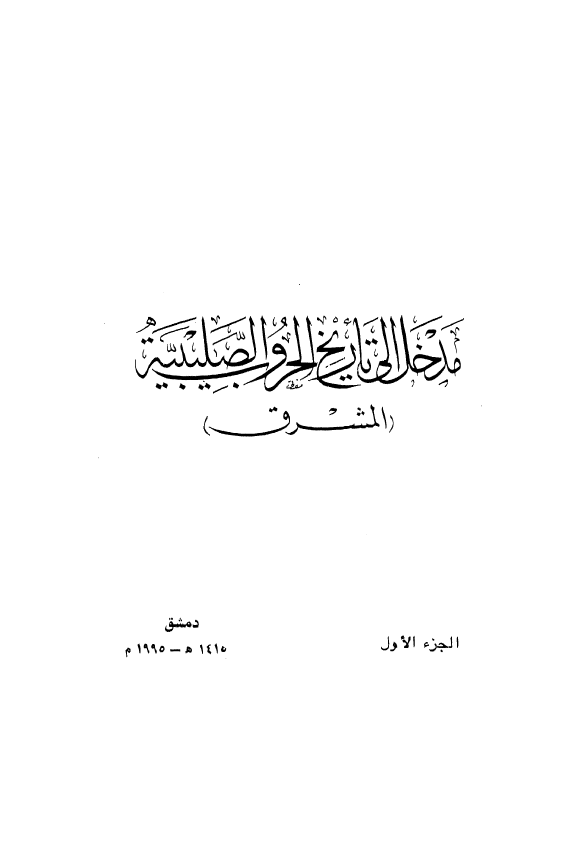 مدخل الى تاريخ الحروب الصليبية
(المشرق)
الجزء الأول
دمشق
١٤١٥ هـ - ١٩٩٥ م